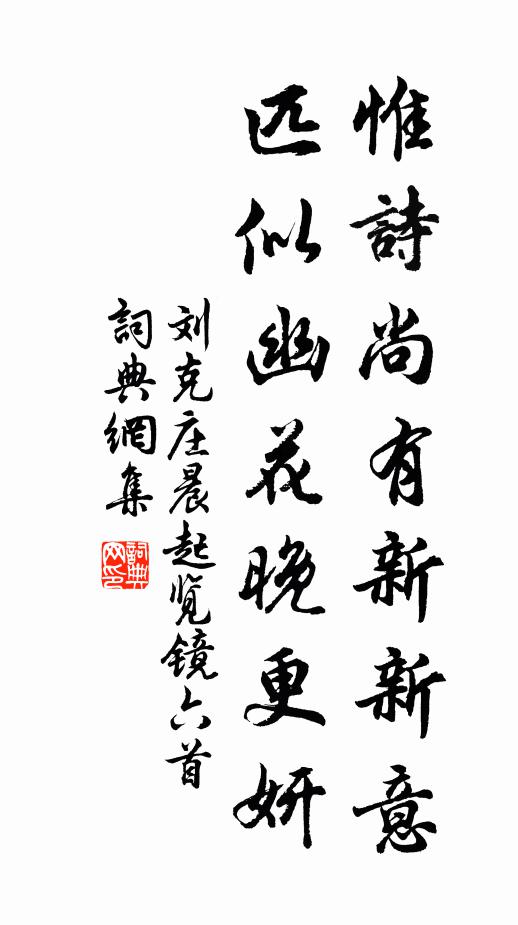 惟詩尚有新新意
匹似幽花晚更妍
刘克庄晨起览镜六首
詞典網集
詞典网印